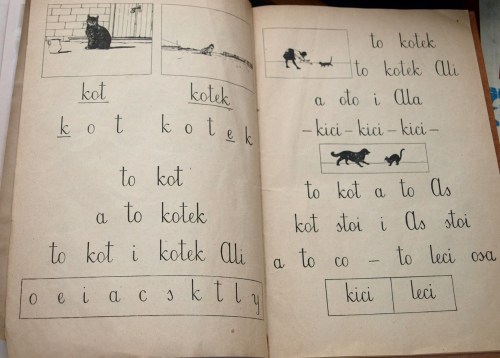 kot kotek
k o t k o t e k
to kot
a to kotek
to kot i kotek Ali
o e i a c s k t l y
to kotek
to kotek Ali
a oto i Ala
- kici - kici - kici -
to kot a to As
kot stoi i As stoi
a to co - to leci osa
kici leci